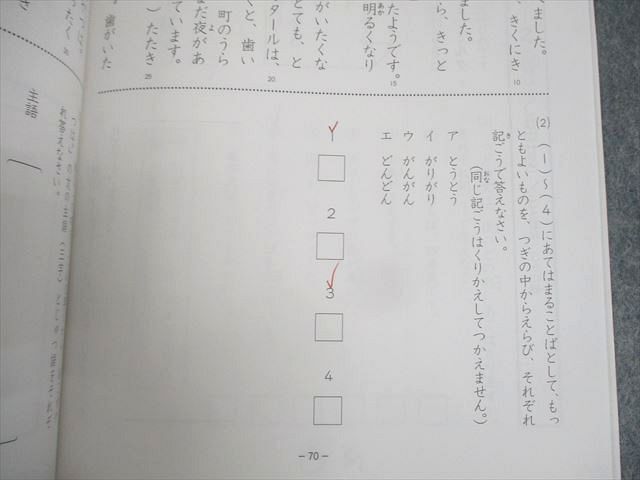 いました。
、きくにき
10
ました。
ら、きっと
たようです。
15
あか
明るくなり
がいたくな
とても、と
タールは、
20
くと、歯い
町のうら
よ
なだ夜があ
ています。
）たたき
25
、歯がいた
(2)　(1)～(4)にあてはまることばとして、もっ
ともよいものを、つぎの中からえらび、それぞれ
き
記ごうで答えなさい。
おな
（同じ記ごうはくりかえしてつかえません。）
ア　とうとう
イ　がりがり
ウ　がんがん
エ　どんどん
1
2
3
4
主語
れ答えなさい。
－70－